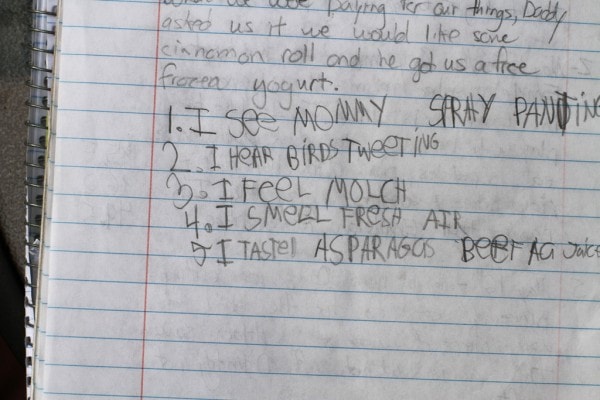 we were paying for our things, Daddy
asked us if we would like some
cinnamon roll and he got us a free
frozen yogurt.
1. I SEE MOMMY SPRAY PANTING
2. I HEAR BIRDS TWEETING
3. I FEEL MOLCH
4. I SMELL FRESH AIR
5 I TASTE ASPARAGUS BEEF AG Juice